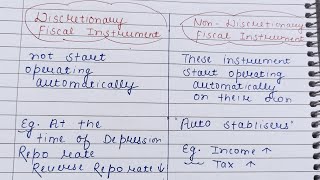 Discretionary
Fiscal Instrument
not start
operating
automatically
Eg. At the
time of Depression
Repo rate
Reverse Repo rate ↓
Non-Discretionary
Fiscal Instrument
These instrument
start operating
automatically
on their own
Auto stablisers'
Eg. Income ↑
Tax ↑